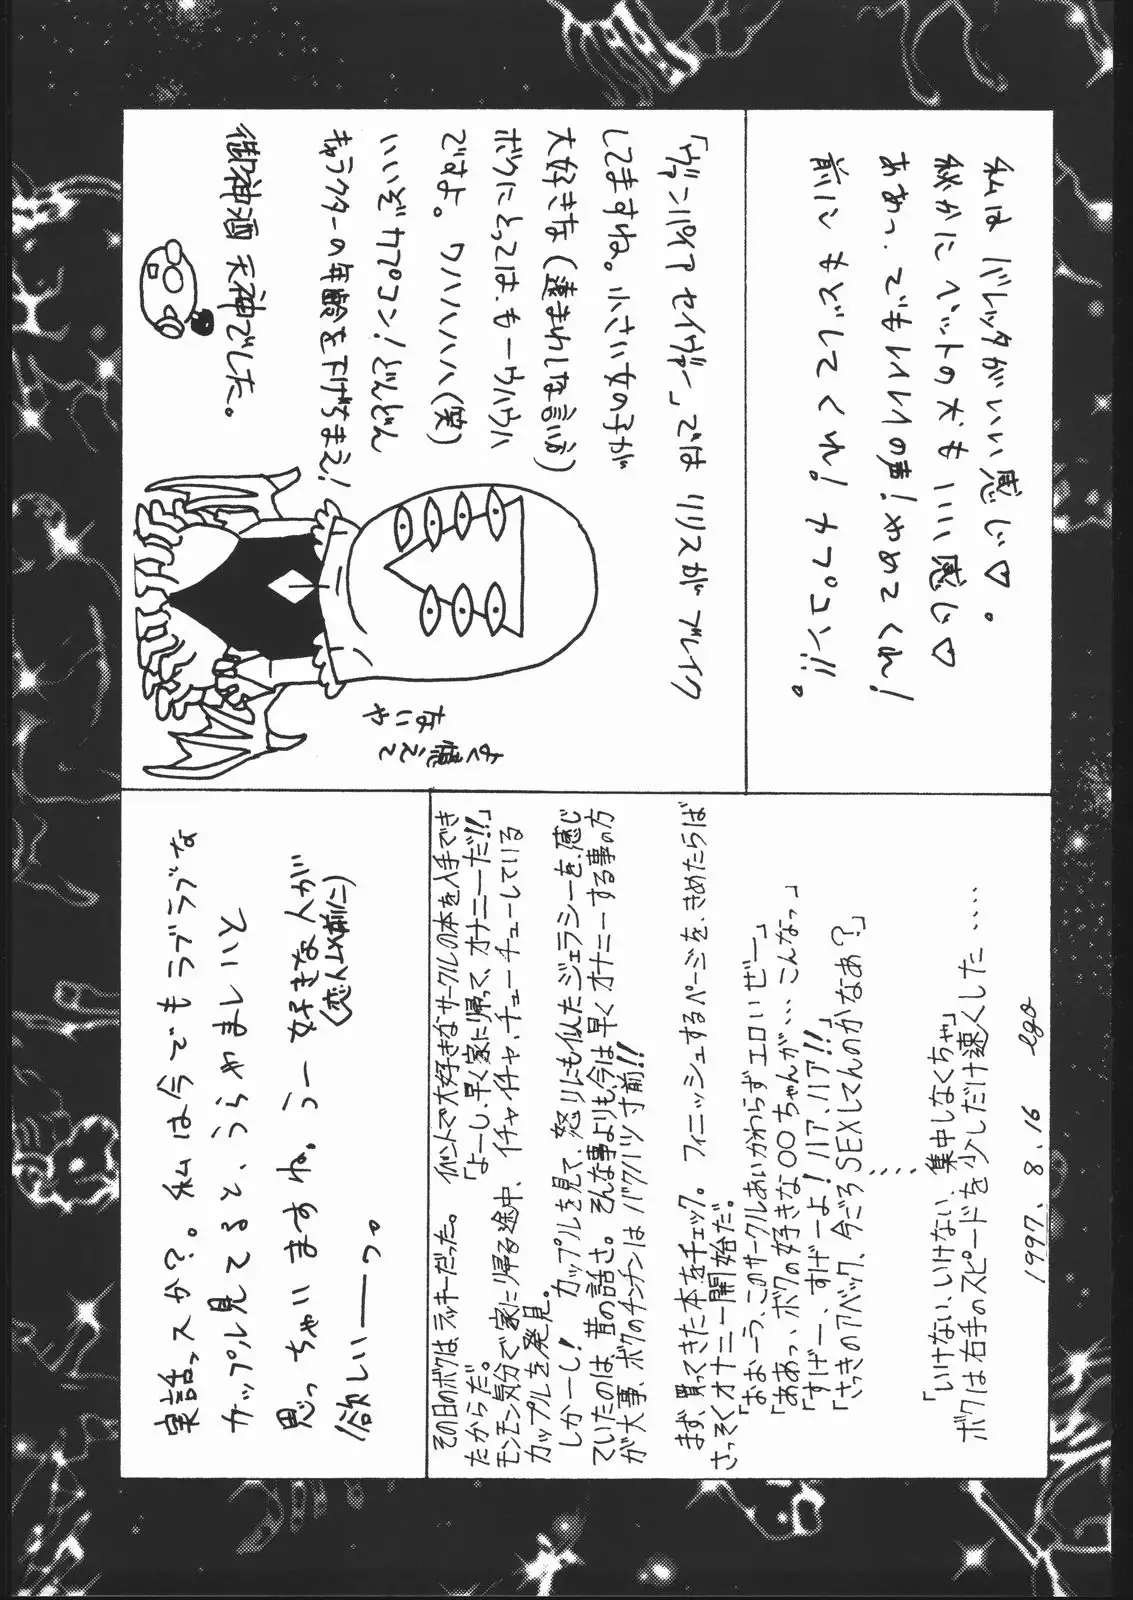 私はバレッタがいい感じ♡。
秘かにペットの犬もいい感じ♡
「ヴァンパイア セイヴァー」では リリスがブレイク
してますね。小さい女の子が
大好きな
ボクにとっては、もーウハウハ
ですよ。ワハハハハハ(笑)
いいぞカプコン!どんどん
キャラクターの年齢を下げちまえ!
御神酒天神でした。
よく憶えて
ないや
1997. 8. 16 ego
「いけない、いけない、集中しなくちゃ」
ボクは右手のスピードを少しだけ速くした....
「おおーう、このサークルあいかわらずエロいぜー」
「ああっ、ボクの好きな〇〇ちゃんが、、、こんなっ」
「すげー、すげーよ!ハア、ハア!!」
「さっきのアベック、今ごろSEXしてんのかなあ?」
まず、買ってきた本をチェック。フィニッシュするページを、きめたらば
さっそくオナニー開始だ。
しかーし! カップルを見て、怒りにも似たジェラシーを、感じ
ていたのは、昔の話さ。そんな事よりも、今は早くオナニーする事の方
が大事、ボクのチンチンはバクハツ寸前!!
その日のボクは、ラッキーだった。イベントで大好きなサークルの本を入手でき
たからだ。「よーし、早く家に帰って、オナニーだ!!」
モンモン気分で家に帰る途中、イチャイチャ、チューチューしている
カップルを発見。
実話っスか?。私は今でもラブラブな
カップル見てると、うらやましいと
思っちゃいますね。うー好きな人が
(恋人以前に)
欲しいーーっ。